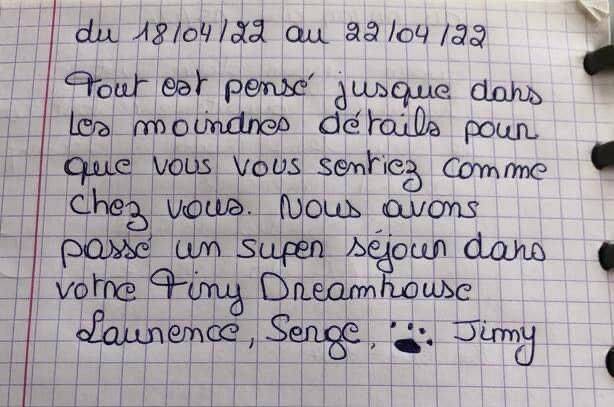 du 18/04/22 au 22/04/22
Tout est pensé jusque dans
les moindres détails pour
que vous vous sentiez comme
chez vous. Nous avons
passé un super séjour dans
votre Tiny Dreamhouse
Laurence, Serge, Jimmy